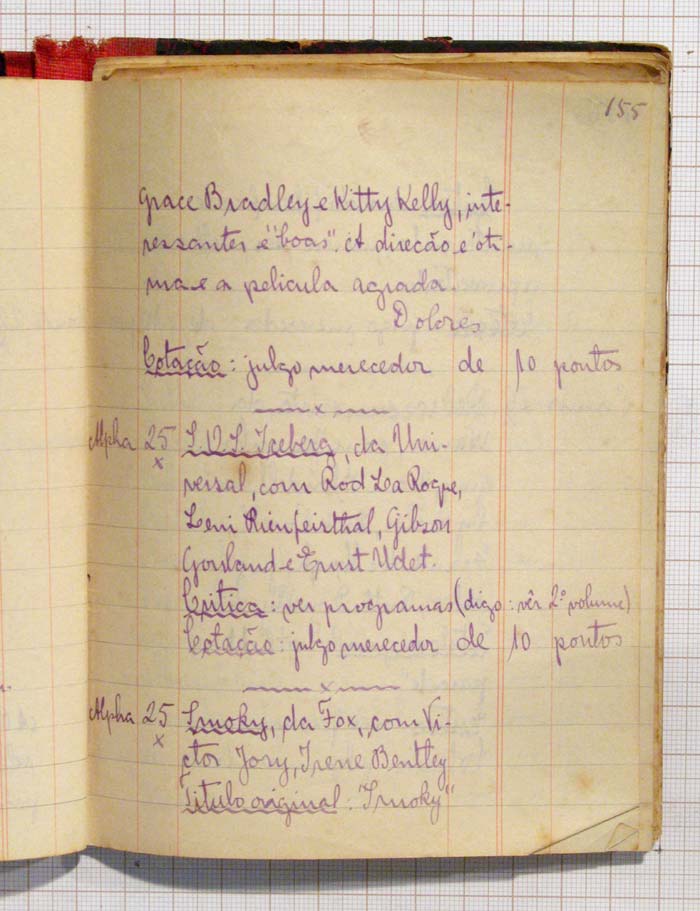 155
Grace Bradley e Kitty Kelly, inte-
ressantes e "boas". A direcão é óti-
ma e a pelicula agrada
Dolores
Cotação: julgo merecedor de 10 pontos
x
Alpha 25 S.O.S. Iceberg, da Uni-
x
versal, com Rod La Roque,
Leni Rienfeirthal, Gibson
Gowland e Ernst Udet.
Critica: ver programas (digo: vêr 2º volume)
Cotação: julgo merecedor de 10 pontos
x
Alpha 25 Smoky, da Fox, com Vi-
x
ctor Jory, Irene Bentley
Titulo original: "Smoky"